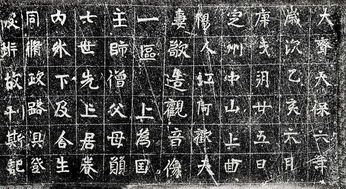 大齊天保六年
歲次乙亥六月
庚戌朔廿五日
定州中山上曲
人阿歡夫
妻敬造觀音像
一區上為國
主師僧父母願
七世先亡居眷
內外下及含生
同政路俱登
故刊斯記